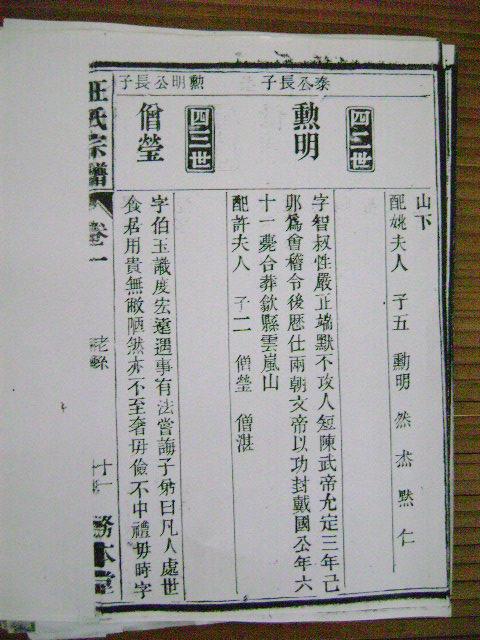 山下
配姚夫人 子五 勳明 然 杰 㸃 仁
四二世
泰公長子
勳明
字智叔性嚴正端默不攻人短陳武帝允定三年己
卯爲會稽令後歷仕兩朝文帝以功封戴國公年六
十一薨合葬歙縣雲嵐山
配許夫人 子二 僧瑩 僧湛
四三世
勳明公長子
僧瑩
字伯玉識度宏遠遇事有法嘗誨子弟曰凡人處世
食居用貴無敝陋然亦不至奢毋儉不中禮毋時字
汪氏宗譜
卷一
務本堂